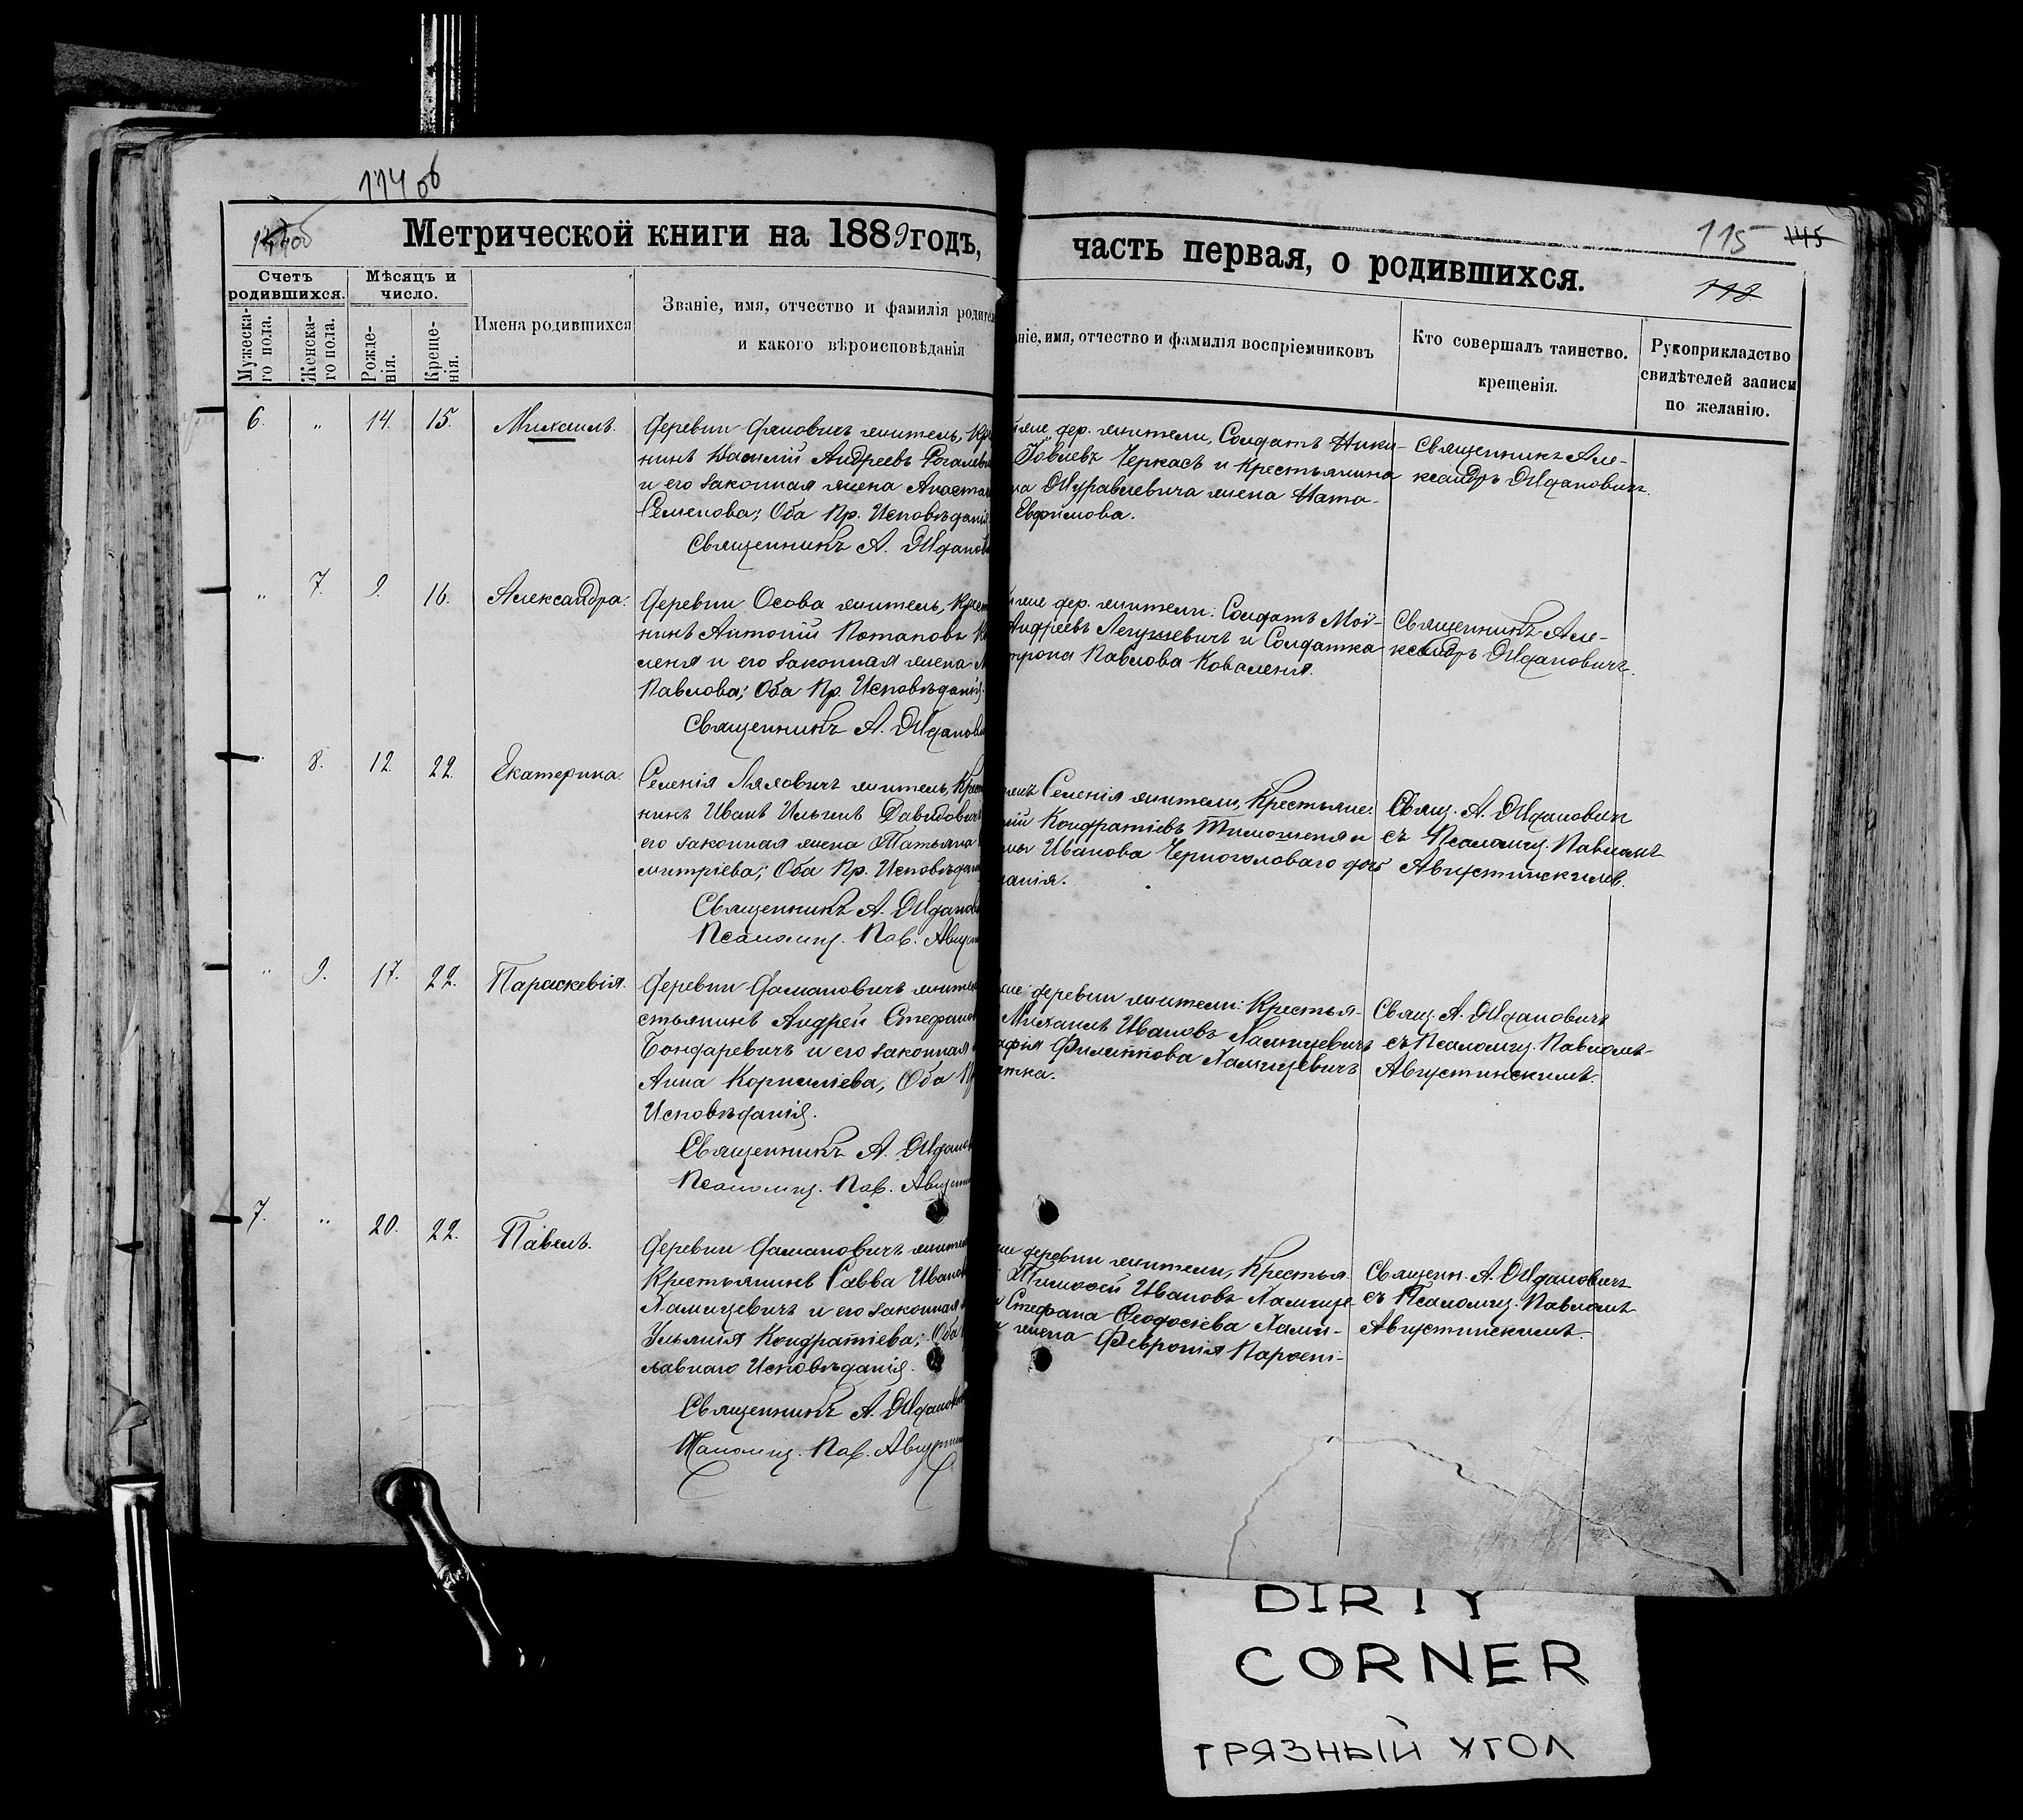 114 об
Метрической книги на 1889 годъ,
часть первая, о родившихся.
115
145
118
Счетъ родившихся.
Мужеска-го пола.
Женска-го пола.
Мѣсяцъ и число.
Рожде-нія.
Креще-нія.
Имена родившихся
Званіе, имя, отчество и фамилія родител
и какого вѣроисповѣданія
ніе, имя, отчество и фамилія воспріемниковъ
Кто совершалъ таинство.
крещенія.
Рукоприкладство
свидѣтелей записи
по желанію.
6. " 14. 15. Михаилъ.
Деревни житель, Кре
нинъ Василій Андреевъ
и его законная жена Анаста
Семенова; Оба Пр. Исповѣданія.
Священникъ А. Ждано
дер. жители, Солдатъ Ники-
Іовлевъ Черкасъ и Крестьянина
на Журавлевича жена Ната-
Евфимова.
Священникъ Але-
ксандръ Ждановичъ.
" 7. 9. 16. Александра.
Деревни Осова житель, Крест
нинъ Антоній Потаповъ К
леня и его законная жена
Павлова; Оба Пр. Исповѣданія.
Священникъ А. Жданов
же дер. жители: Солдатъ Мой-
Андреевъ и Солдатка
Павлова Коваленя.
Священникъ Але-
ксандръ Ждановичъ.
" 8. 12. 22. Екатерина.
Селенія житель, Крест
нинъ Иванъ Ильинъ Давидович
его законная жена Татьяна
митріева; Оба Пр. Исповѣдан
Священникъ А. Жданов
Псаломщ. Пав. Август
Селенія жители, Крестьяне:
Кондратіевъ Тимошеня и
Иванова Черноголоваго дочь
анія.
Свящ. А. Ждановичъ
съ Псаломщ. Павломъ
Августинскимъ.
" 9. 17. 22. Параскевія.
Деревни Дамановичъ жител
стьянинъ Андрей Стефано
Бондаревичъ и его законная
Анна Корниліева; Оба Пр
Исповѣданія.
Священникъ А. Ждано
Псаломщ. Пав. Августи
деревни жители: Крестья-
Михаилъ Ивановъ Хамицевичъ
афія Филиппова Хамицевичъ
Свящ. А. Ждановичъ
съ Псаломщ. Павломъ
Августинскимъ.
7. " 20. 22. Павелъ.
Деревни Дамановичъ жител
Крестьянинъ Савва Иванов
Хамицевичъ и его законная
Ульянія Кондратіева; Оба
лавнаго Исповѣданія.
Священникъ А. Жданов
Псаломщ. Пав. Августин
деревни жители, Крестья
Тимофей Ивановъ Хамице
Стефана Ѳеодосіева Хами-
жена Февронія Парѳені-
Священн. А. Ждановичъ
съ Псаломщ. Павломъ
Августинскимъ.
DIRTY
CORNER
ГРЯЗНЫЙ УГОЛ